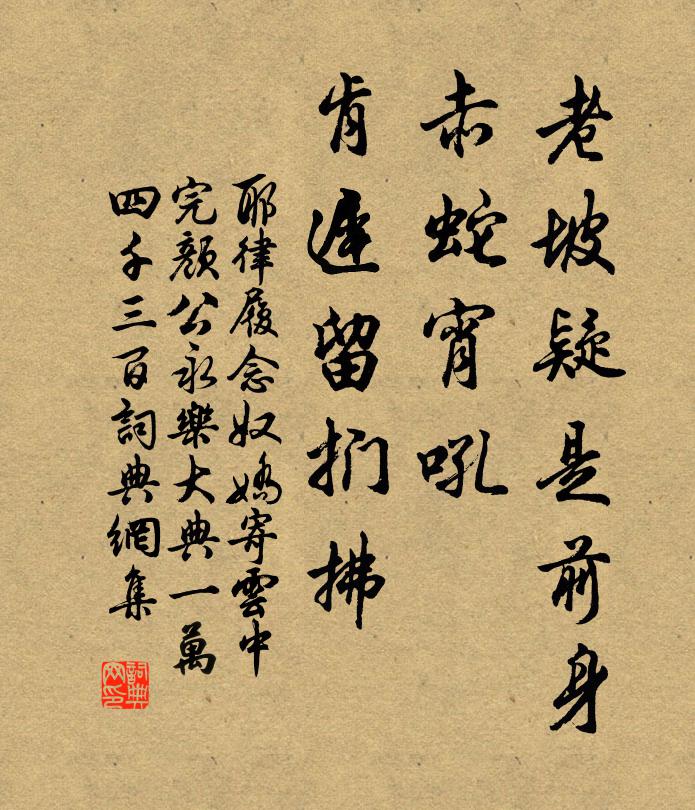 老坡疑是前身
赤蛇宵吼
肯遲留捫拂
耶律履念奴嬌寄雲中
完顏公永樂大典一萬
四千三百詞典網集
詞典
网印